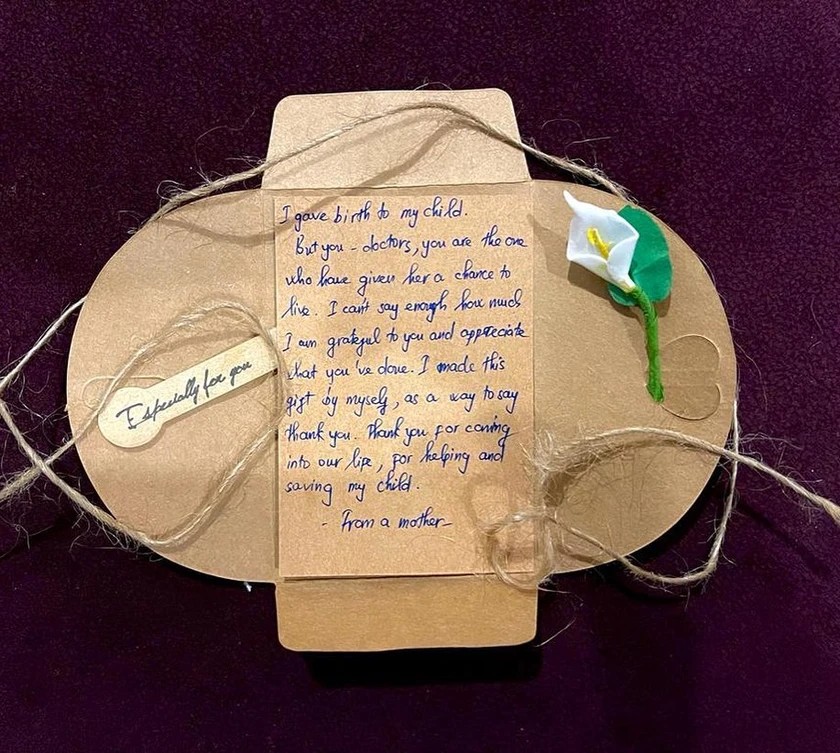 I gave birth to my child.
But you - doctors, you are the one
who have given her a chance to
live. I can't say enough how much
I am grateful to you and appreciate
what you've done. I made this
gift by myself, as a way to say
thank you. Thank you for coming
into our life, for helping and
saving my child.
- From a mother -
Especially for you